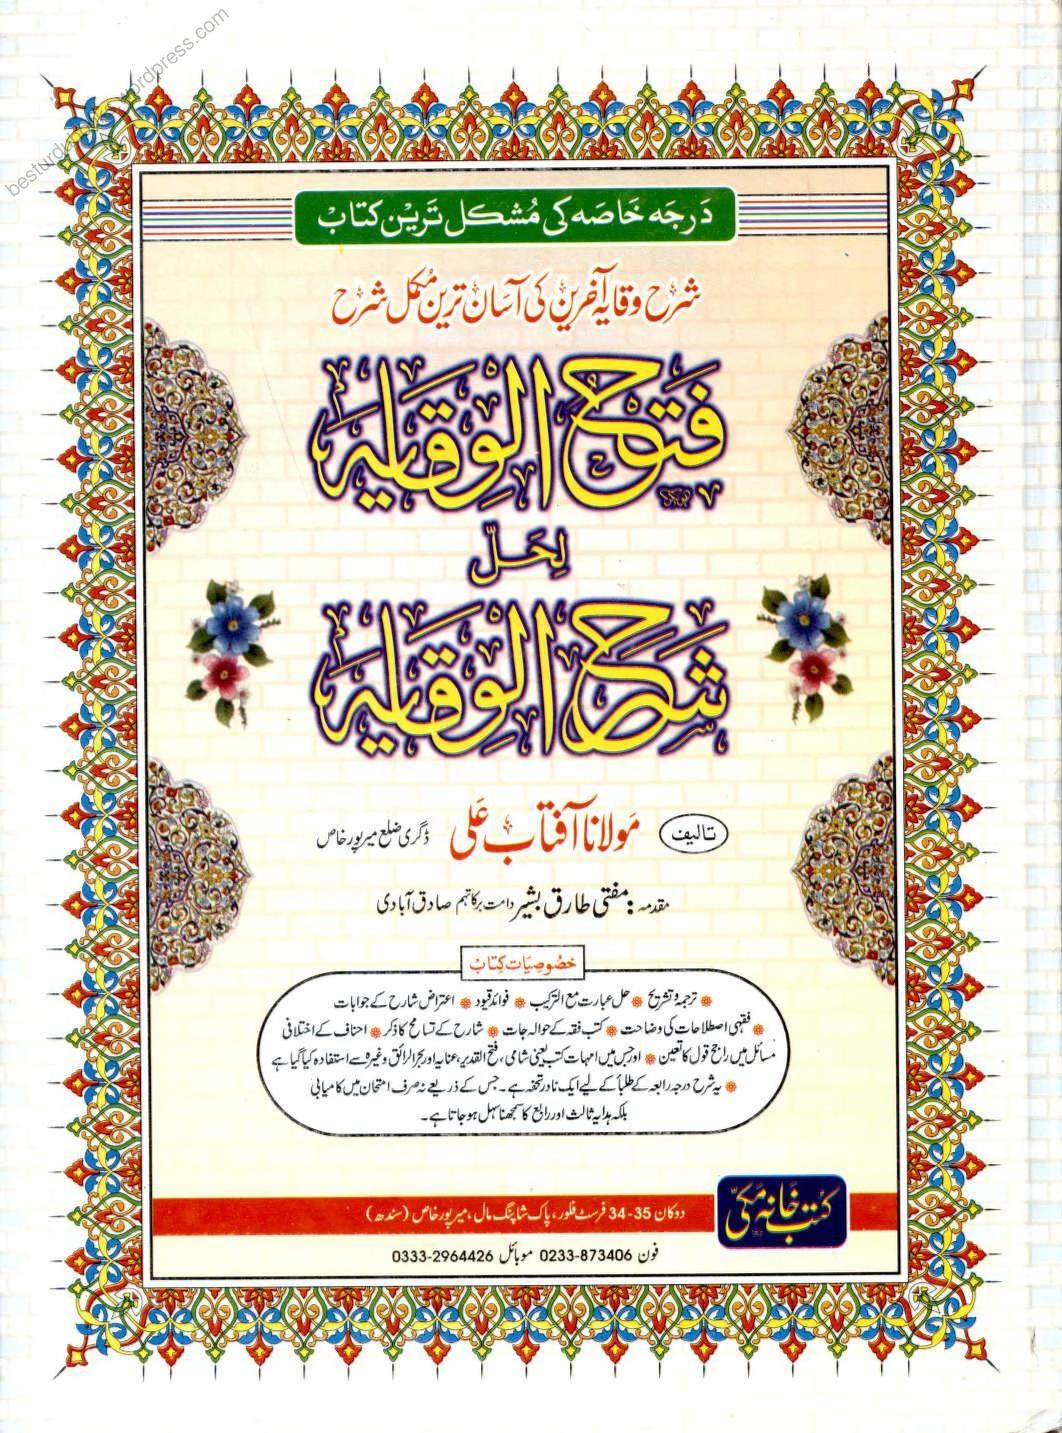 besturdubooks.wordpress.com
درجہ خاصہ کی مشکل ترین کتاب
شرح وقایہ آخرین کی آسان ترین مکمل شرح
فتح الوقایہ
لحل
شرح الوقایہ
تالیف مولانا آفتاب علی ڈگری ضلع میرپورخاص
مقدمہ: مفتی طارق بشیر دامت برکاتہم صادق آبادی
خصوصیات کتاب
ترجمہ و تشریح حل عبارت مع الترکیب فوائد قیود اعتراض شارح کے جوابات
فقہی اصطلاحات کی وضاحت کتب فقہ کے حوالہ جات شارح کے تسامح کا ذکر احناف کے اختلافی
مسائل میں راجح قول کا تعین اور جس میں امہات کتب یعنی شامی، فتح القدیر، عنایہ اور بحر الرائق وغیرہ سے استفادہ کیا گیا ہے
یہ شرح درجہ رابعہ کے طلبأ کے لیے ایک نادر تحفہ ہے۔ جس کے ذریعے نہ صرف امتحان میں کامیابی
بلکہ ہدایہ ثالث اور رابع کا سمجھنا سہل ہو جاتا ہے۔
کتب خانہ مکی
دوکان 35-34 فرسٹ فلور، پاک شاپنگ مال، میرپورخاص (سندھ)
فون 0233-873406 موبائل 0333-2964426